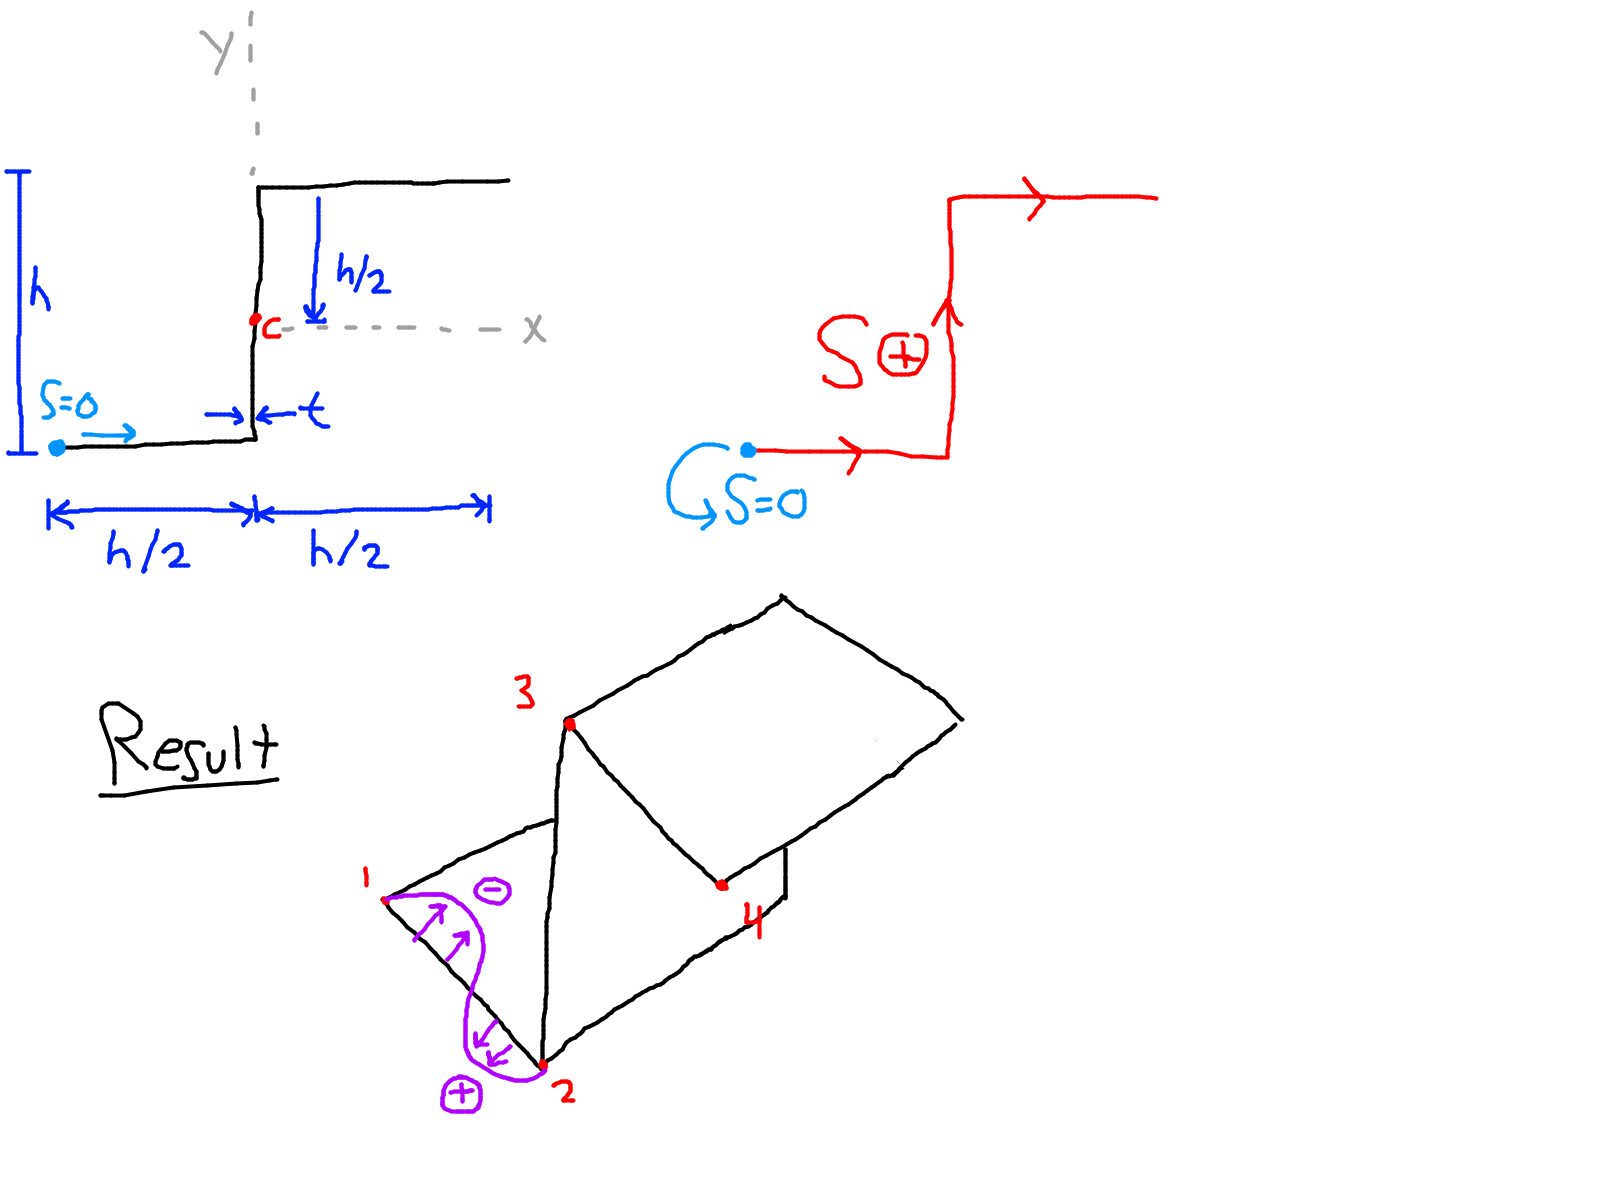 y
h
h/2
c
x
S=0
t
h/2
h/2
S ⊕
S=0
Result
3
1
⊖
4
⊕
2